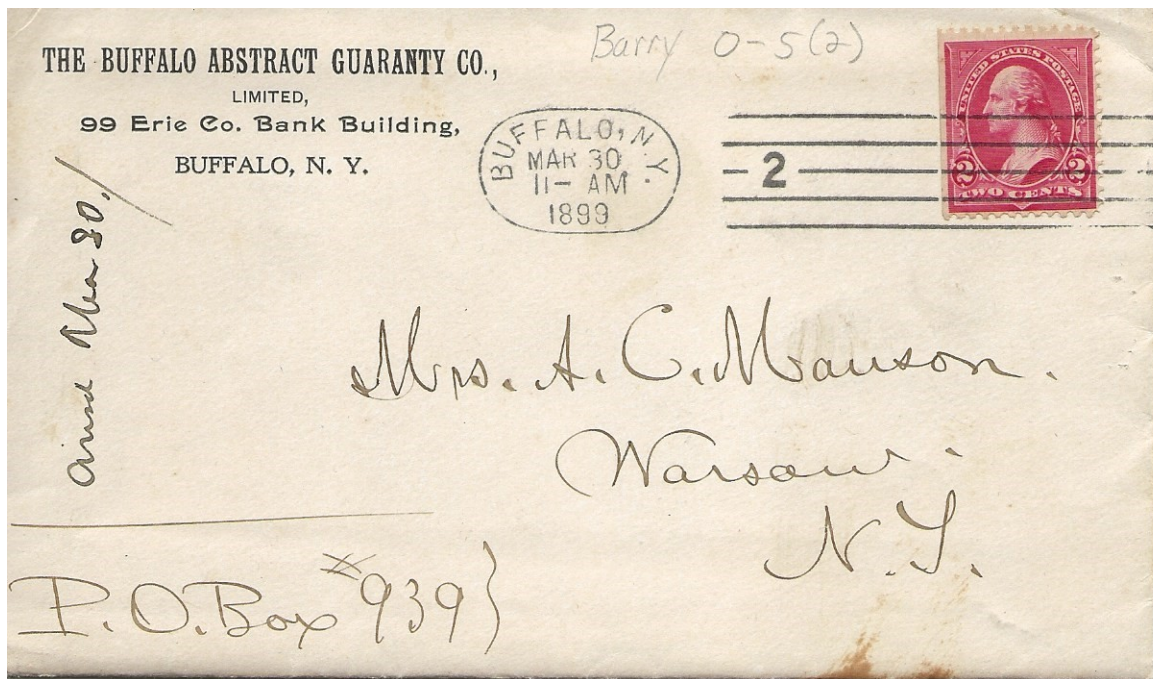 THE BUFFALO ABSTRACT GUARANTY CO.,
LIMITED,
99 Erie Co. Bank Building,
BUFFALO, N. Y.
Barry O-5(2)
BUFFALO, N.Y.
MAR 30
11- AM
1899
2
UNITED STATES POSTAGE
2 2
TWO CENTS
30.
Mrs. A. C. Manson.
Warsaw.
N.Y.
P.O. Box #939}